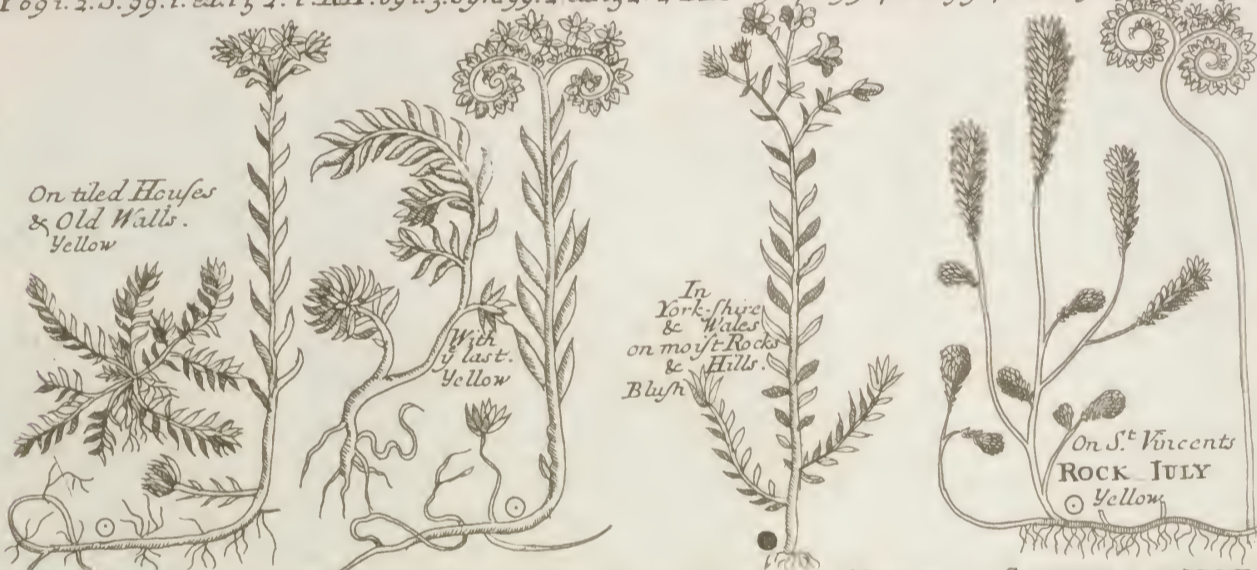 On tiled Houſes
& Old Walls.
Yellow
With
yͤ last.
Yellow
In
York-ſhire
& Wales
on moiſt Rocks
& Hills.
Bluſh
On Sᵗ. Vincents
ROCK JULY
Yellow